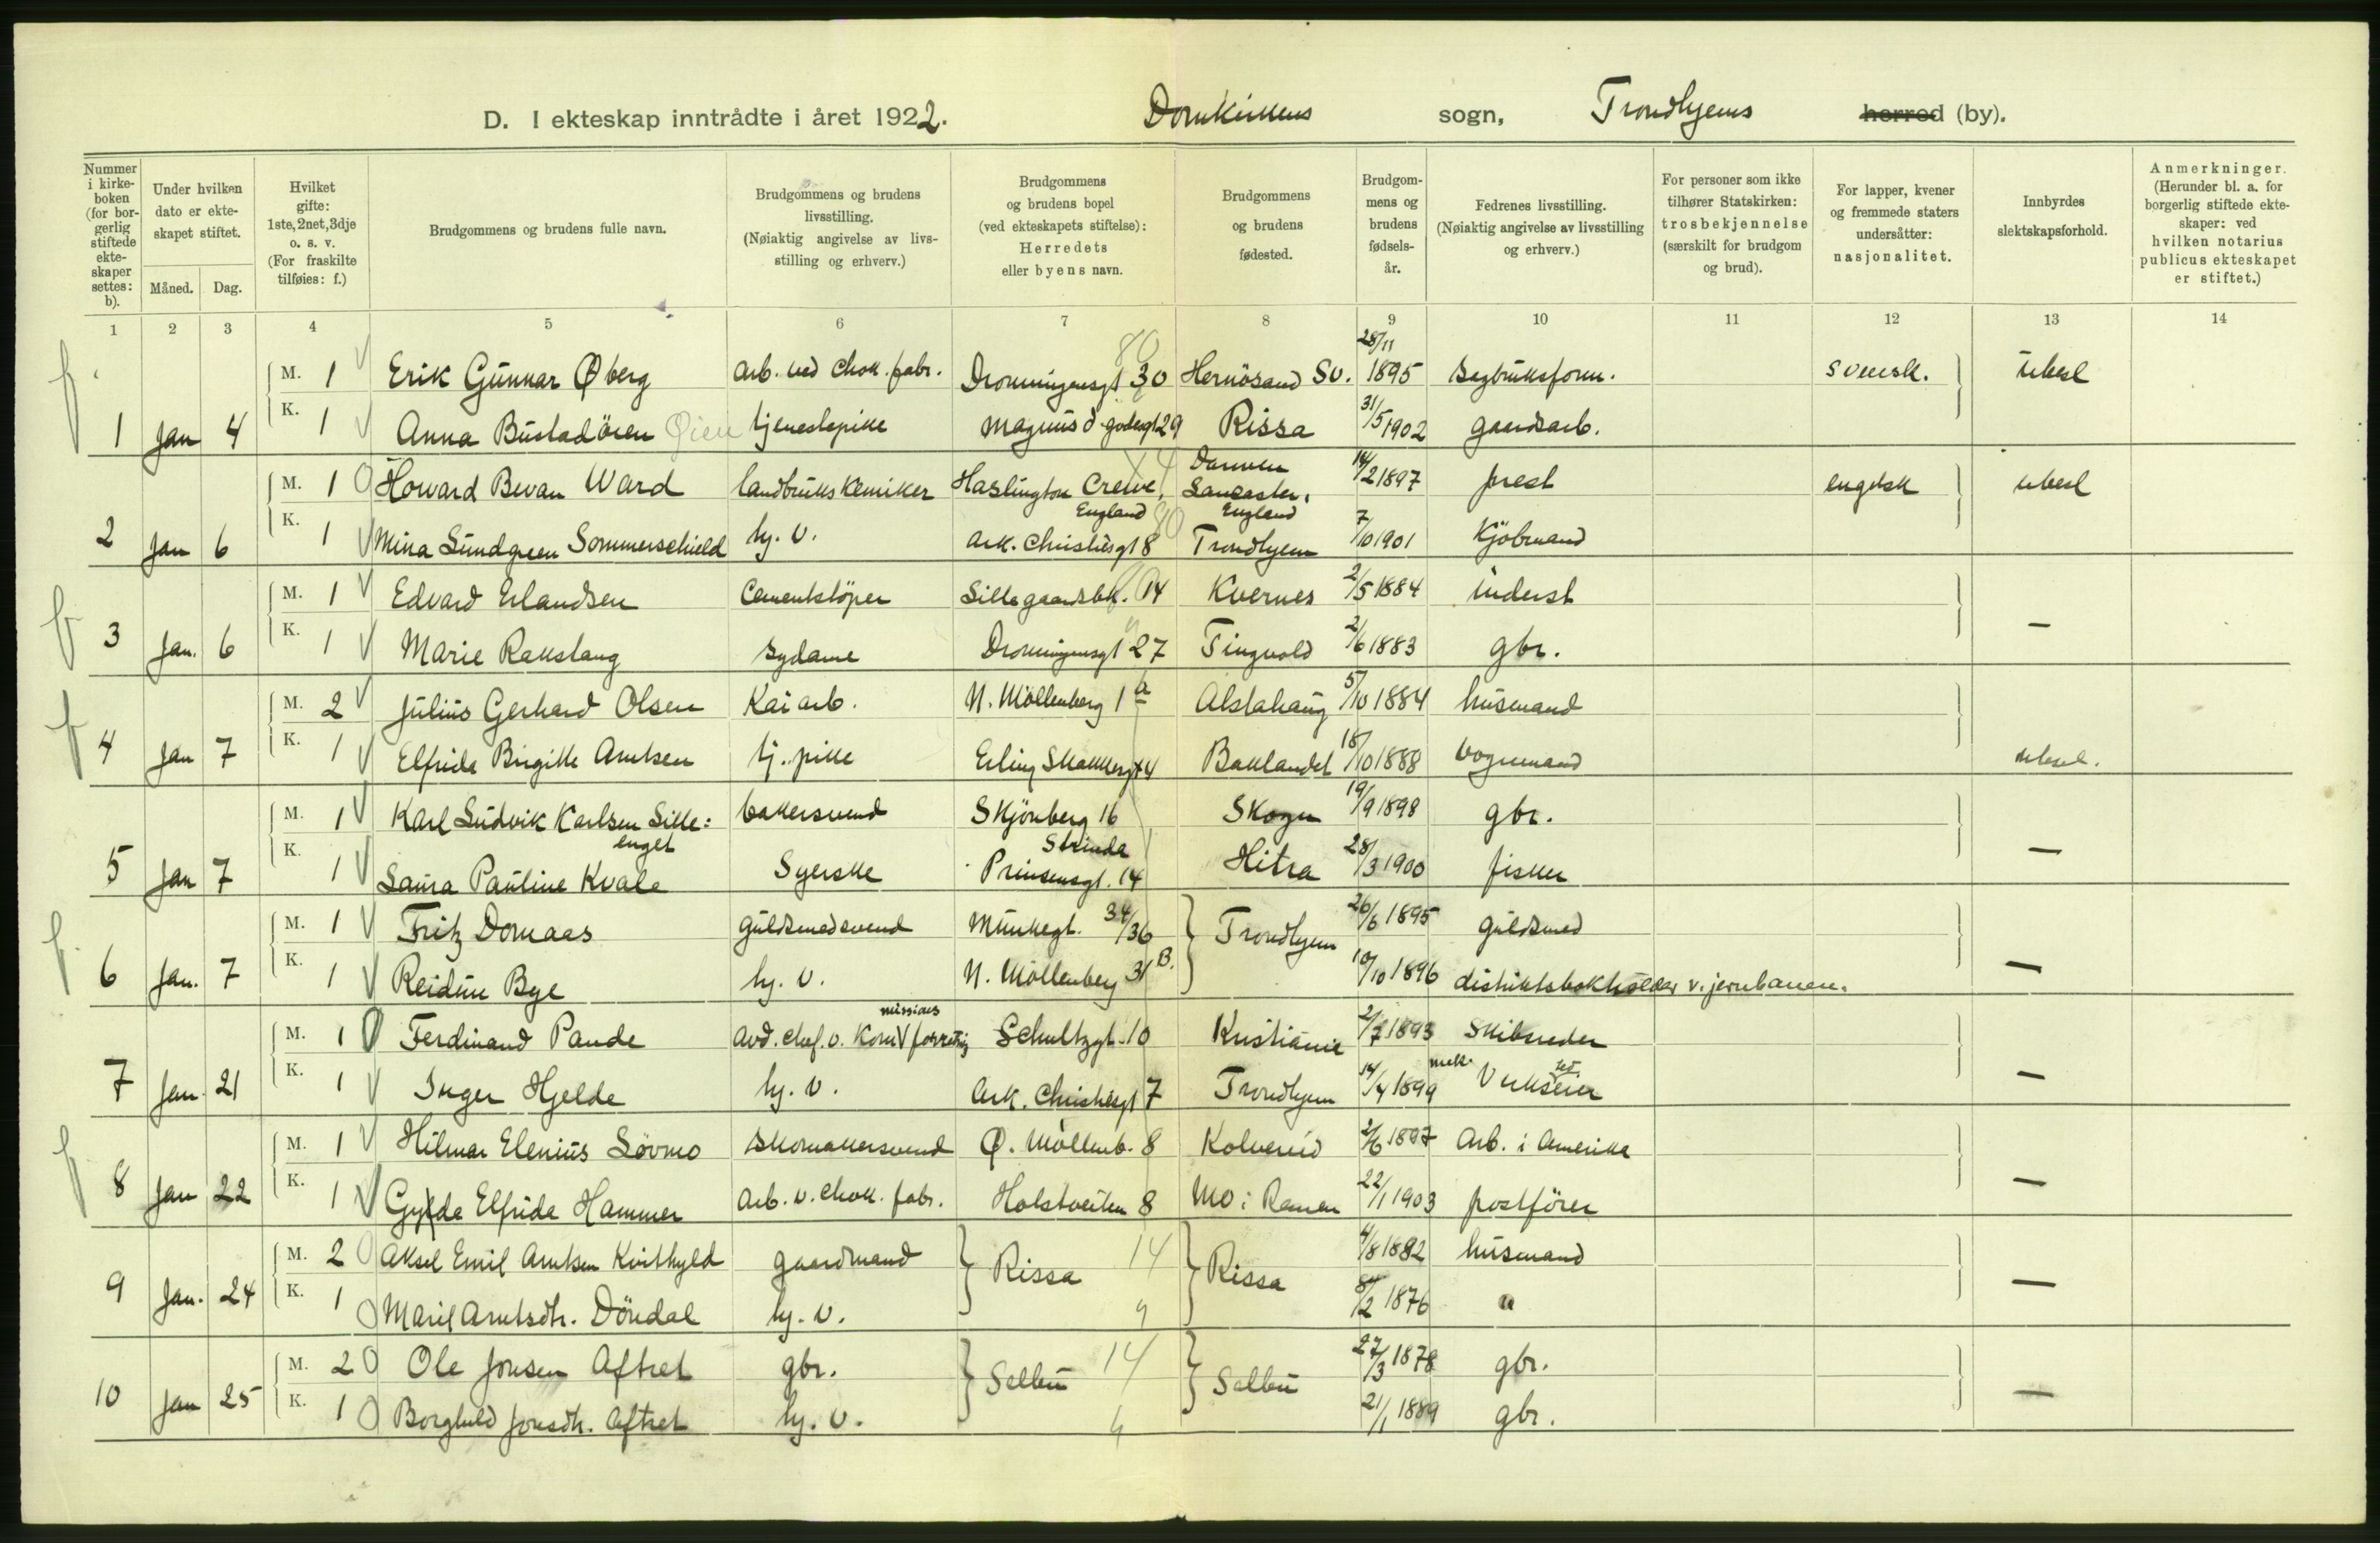 D. I ekteskap inntrådte i året 1922. Domkirkens sogn, Trondhjems herred (by).
Nummer i kirkeboken (for borgerlig stiftede ekteskaper settes: b).
Under hvilken dato er ekteskapet stiftet.
Måned. Dag.
Hvilket gifte: 1ste, 2net, 3dje o. s. v. (For fraskilte tilføies: f.)
Brudgommens og brudens fulle navn.
Brudgommens og brudens livsstilling. (Nøiaktig angivelse av livsstilling og erhverv.)
Brudgommens og brudens bopel (ved ekteskapets stiftelse): Herredets eller byens navn.
Brudgommens og brudens fødested.
Brudgommens og brudens fødselsår.
Fedrenes livsstilling. (Nøiaktig angivelse av livsstilling og erhverv.)
For personer som ikke tilhører Statskirken: trosbekjennelse (særskilt for brudgom og brud).
For lapper, kvener og fremmede staters undersåtter: nasjonalitet.
Innbyrdes slektskapsforhold.
Anmerkninger. (Herunder bl. a. for borgerlig stiftede ekteskaper: ved hvilken notarius publicus ekteskapet er stiftet.)
1 2 3 4 5 6 7 8 9 10 11 12 13 14
M. 1 Erik Gunnar Øberg Arb. ved Chok. fabr. Dronningensgt 30 Hernösand Sv. 28/11 1895 Sagbruksform. svensk. ubesl
1 Jan 4 K. 1 Anna Bustadören Øien tjenestepike Magnus d. godesgt 29 Rissa 31/5 1902 gaardsarb.
M. 1 Howard Bevan Ward landbrukskemiker Haslington Crewe, England Darwen Lancaster, England 14/2 1897 prest engelsk ubesl
2 Jan 6 K. 1 Mina Lundgreen Sommerschield hj. v. Ark. Christiesgt 8 Trondhjem 7/10 1901 Kjöbmand
M. 1 Edvard Erlandsen Cementstöper Sillegaardsbk. 14 Kvernes 2/5 1884 inderst
3 Jan. 6 K. 1 Marie Rakstang sydame Dronningensgt 27 Tingvold 2/6 1883 gbr. —
M. 2 Julius Gerhard Olsen Kaiarb. N. Möllenberg 1 a Alstahaug 5/10 1884 husmand
4 Jan 7 K. 1 Elfrida Birgitte Arntsen tj. pike Erling Skakkesgt 4 Baklandet 18/10 1888 vognmand ubesl.
M. 1 Karl Ludvik Karlsen Lille:enget bakersvend Skjönberg 16 Strinda Skogn 19/9 1898 gbr.
5 Jan 7 K. 1 Laura Pauline Kvale Syerske Prinsensgt. 14 Hitra 28/3 1900 fisker —
M. 1 Fritz Domaas guldsmedsvend Munkegt. 34/36 Trondhjem 26/6 1895 guldsmed
6 Jan. 7 K. 1 Reidun Bye hj. v. N. Möllenberg 31 B. 10/10 1896 distriktsbokholder v. jernbanen. —
M. 1 Ferdinand Paude Avd. chef. v. Kommissions forretnig Schultzgt. 10 Kristiania 2/7 1893 Skibsreder
7 Jan. 21 K. 1 Inger Hjelde hj. v. Ark. Christiesgt 7 Trondhjem 14/4 1899 mek. Verkseier —
M. 1 Hilmar Elenius Lövmo Skomakersvend Ø. Möllenb. 8 Kolvereid 2/6 1897 Arb. i Amerika
8 Jan 22 K. 1 Gylda Elfrida Hammer Arb. v. chok. fabr. Holstveiten 8 Mo i Ranen 22/1 1903 postförer —
M. 2 Aksel Emil Arntsen Kvithyld gaardmand Rissa 14 Rissa 4/8 1882 husmand
9 Jan. 24 K. 1 Marie Arntsdtr. Döndal hj. v. 8/2 1876 " —
M. 2 Ole Jonsen Aftret gbr. Selbu 14 Selbu 27/3 1878 gbr.
10 Jan 25 K. 1 Borghild Jonsdtr. Aftret hj. v. 21/1 1889 gbr. —